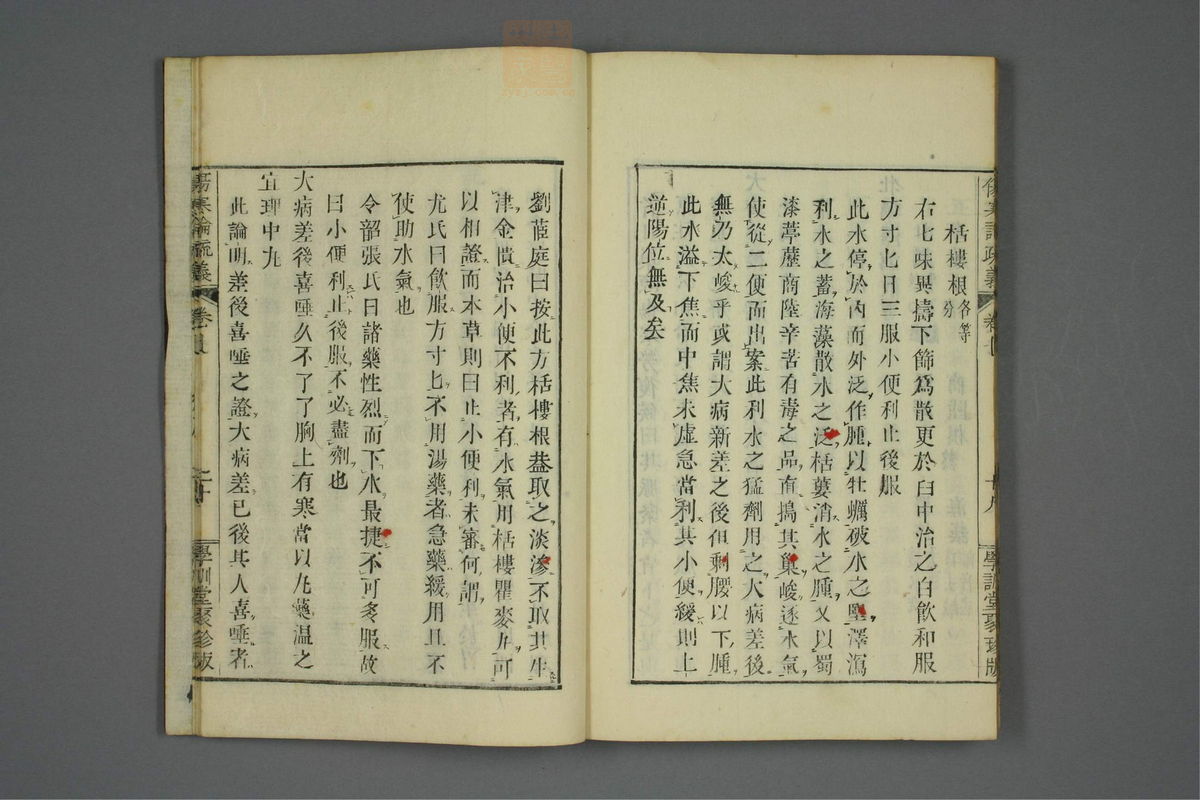 栝樓根各等分
右七味異擣下篩爲散更於臼中治之白飮和服
方寸匕日三服小便利止後服
此水停於內而外泛作腫以牡蠣破水之堅澤瀉
利水之蓄海藻散水之泛栝蔞消水之腫又以蜀
漆葶藶商陸辛苦有毒之品直搗其巢峻逐水氣
使從二便而出案此利水之猛劑用之大病差後
無乃太峻乎或謂大病新差之後但剩腰以下腫
此水溢下焦而中焦未虛急當利其小便緩則上
逆陽位無及矣
學訓堂聚珍版
劉茝庭曰按此方栝樓根葢取之淡滲不取其生
津金匱治小便不利者有水氣用栝樓瞿麥丸可
以相證而本草則曰止小便利未審何謂
尤氏曰飮服方寸匕不用湯藥者急藥緩用且不
使助水氣也
令韶張氏曰諸藥性烈而下水最捷不可多服故
曰小便利止後服不必盡劑也
大病差後喜唾久不了了胸上有寒當以丸藥温之
宜理中丸
此論明差後喜唾之證大病差已後其人喜唾者
傷寒論疏義
學訓堂聚珍版